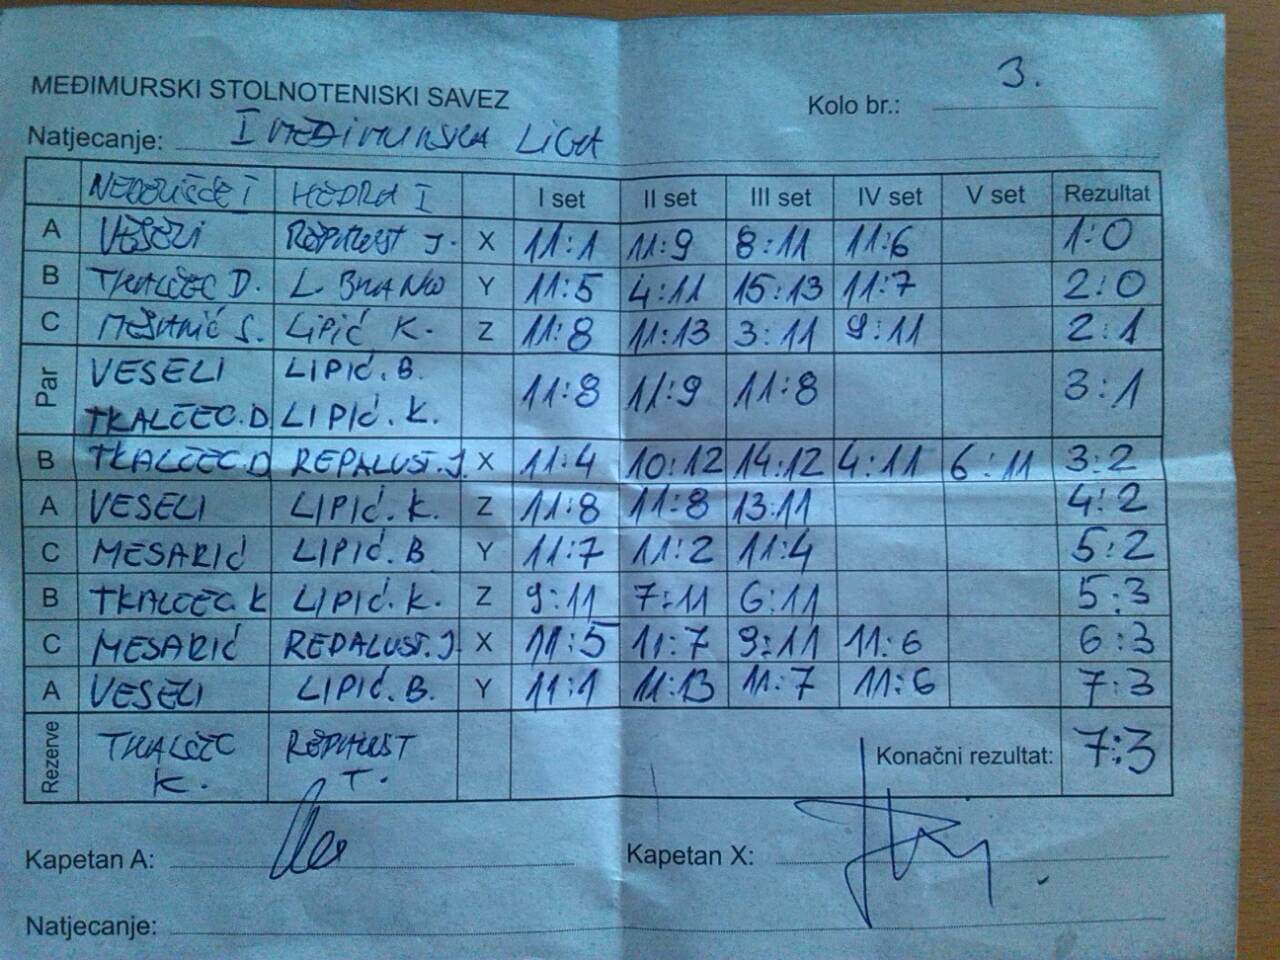 MEĐIMURSKI STOLNOTENISKI SAVEZ
Kolo br.: 3.
Natjecanje: I MEĐIMURSKA LIGA
NEDELIŠĆE I HODRA I I set II set III set IV set V set Rezultat
A VESELI REPALUST J. X 11:1 11:9 8:11 11:6 1:0
B TKALČEC D. L. BRANKO Y 11:5 4:11 15:13 11:7 2:0
C S. LIPIĆ K. Z 11:8 11:13 3:11 9:11 2:1
Par VESELI LIPIĆ.B. 11:8 11:9 11:8 3:1
TKALČEC.D LIPIĆ.K.
B TKALČEC.D REPALUST.J. X 11:4 10:12 14:12 4:11 6:11 3:2
A VESELI LIPIĆ.K. Z 11:8 11:8 13:11 4:2
C MESARIĆ LIPIĆ.B Y 11:7 11:2 11:4 5:2
B TKALČEC.K LIPIĆ.K. Z 9:11 7:11 6:11 5:3
C MESARIĆ REPALUST.J X 11:5 11:7 9:11 11:6 6:3
A VESELI LIPIĆ.B. Y 11:1 11:13 11:7 11:6 7:3
Rezerve TKALČEC K. REPALUST T. Konačni rezultat: 7:3
Kapetan A: Kapetan X:
Natjecanje: